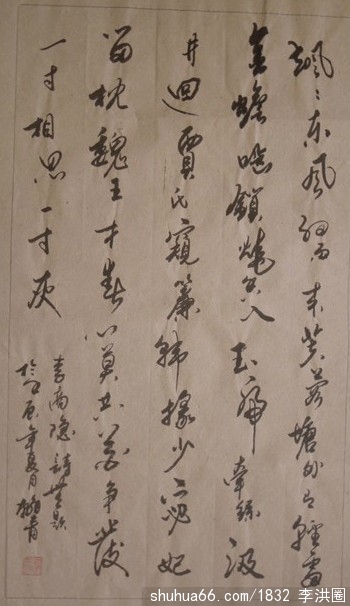 颯〻東風細雨来芙蓉塘外有輕雷
金蟾嚙鎖燒香入玉虎牽絲汲
井迴賈氏窺簾韓掾少宓妃
留枕魏王才春心莫共花争發
一寸相思一寸灰
李商隱詩無題
夏月
shuhua66.com/1832 李洪圈